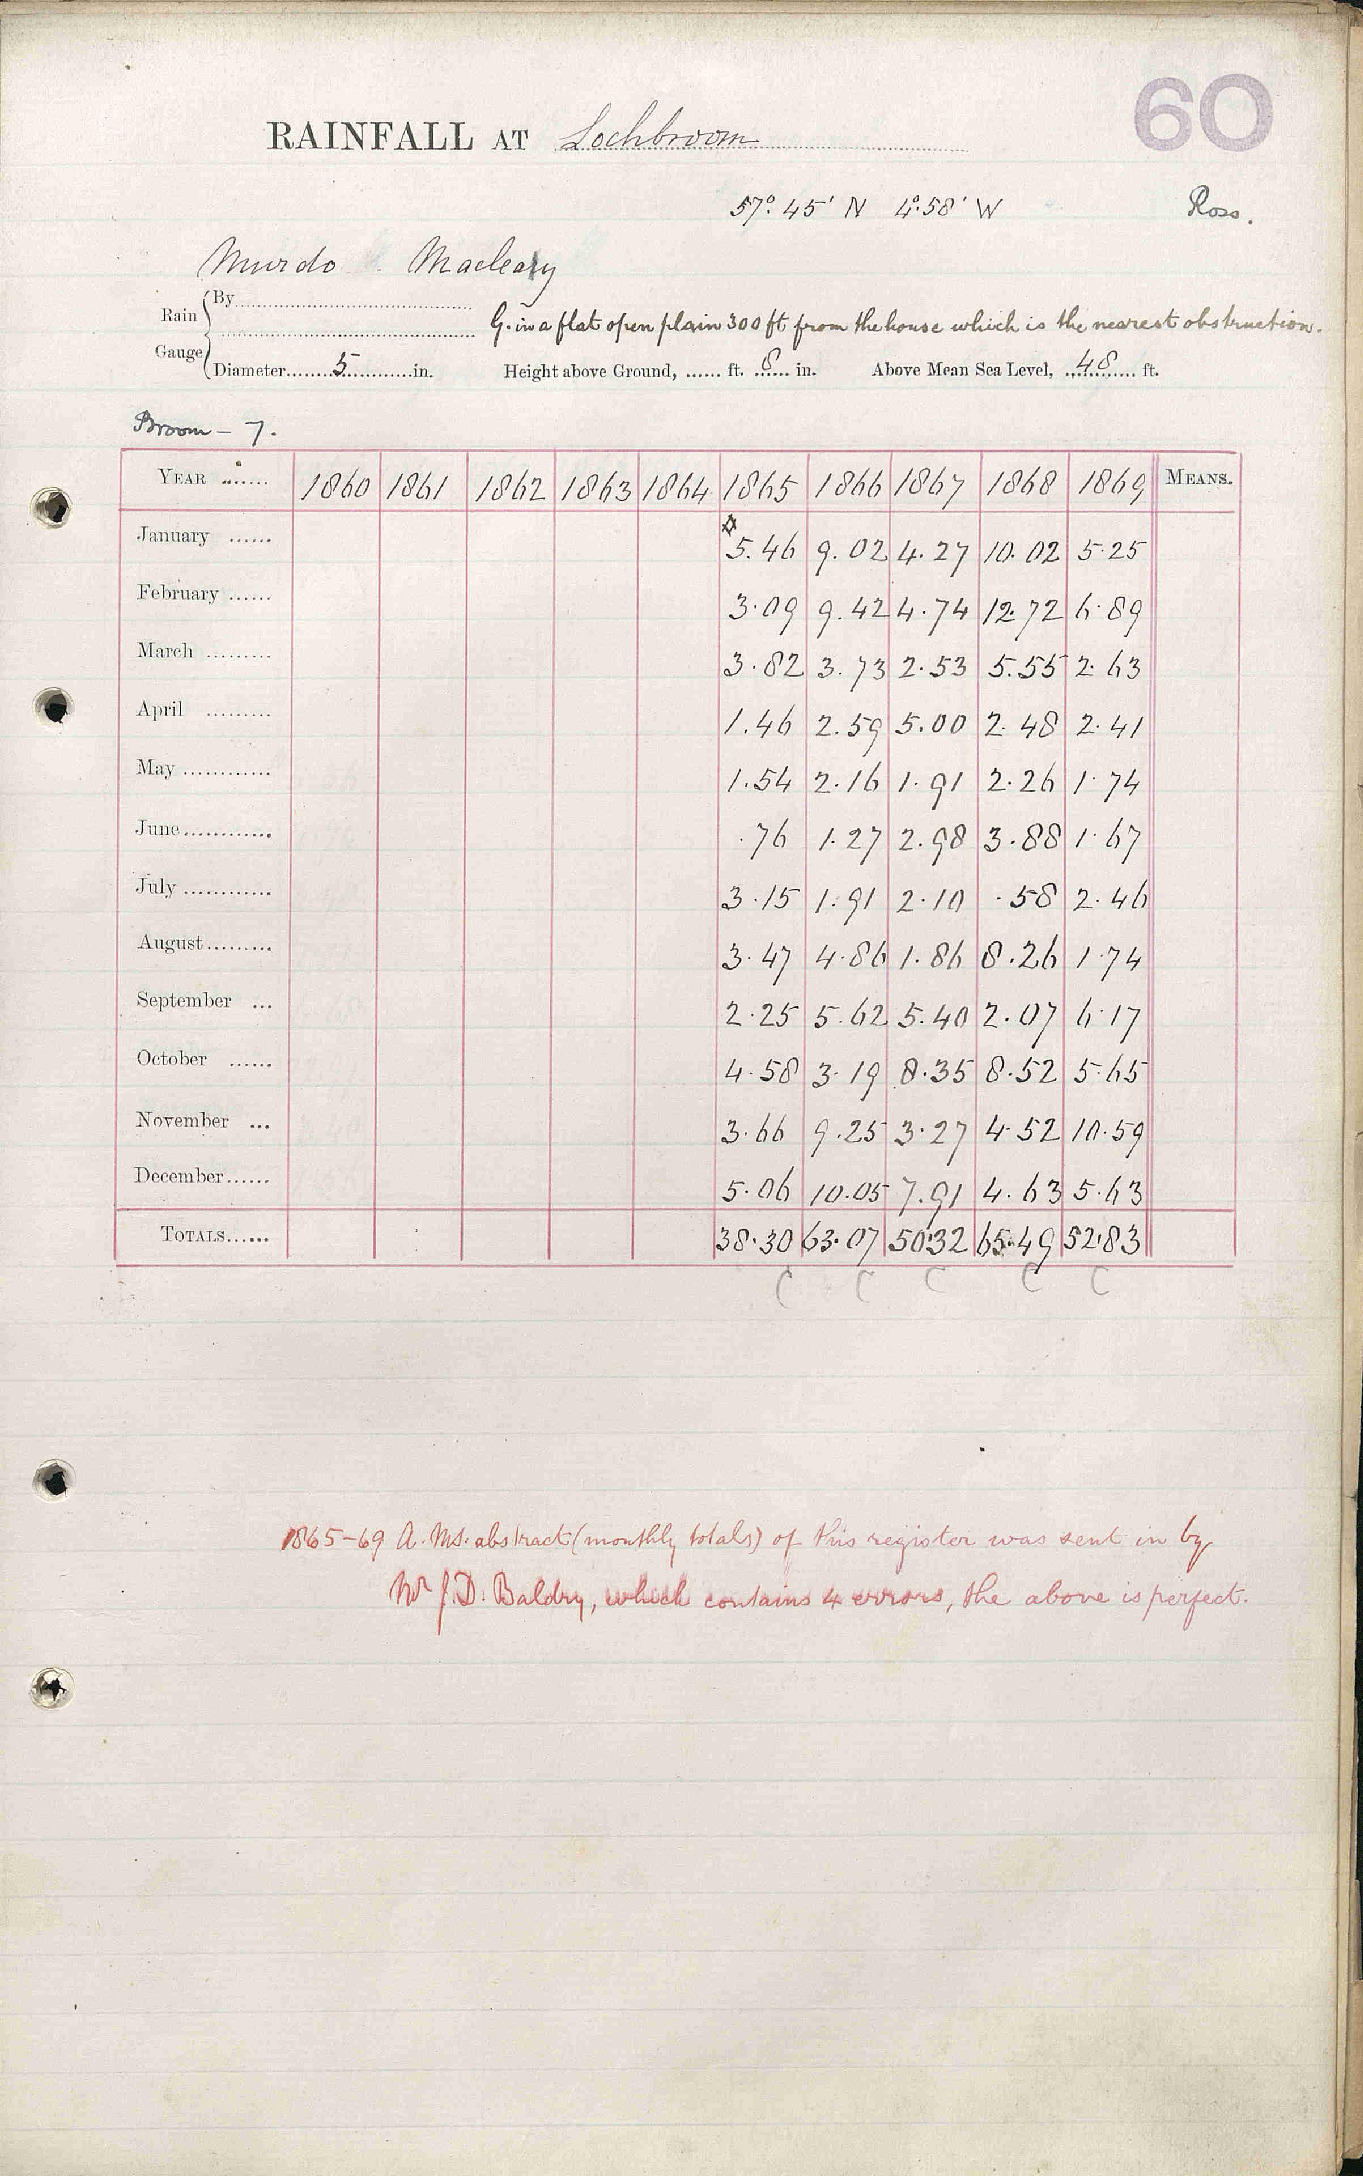 60
RAINFALL AT Lochbroom
57°.45' N 4°.58' W Ross.
Murdo
By
Rain G. in a flat open plain 300 ft from the house which is the nearest obstruction.
Gauge
Diameter 5 in. Height above Ground, ...... ft. 8 in. Above Mean Sea Level, 48 ft.
Broom - 7.
YEAR 1860 1861 1862 1863 1864 1865 1866 1867 1868 1869 MEANS.
January 5.46 9.02 4.27 10.02 5.25
February 3.09 9.42 4.74 12.72 6.89
March 3.82 3.73 2.53 5.55 2.63
April 1.46 2.59 5.00 2.48 2.41
May 1.54 2.16 1.91 2.26 1.74
June .76 1.27 2.98 3.88 1.67
July 3.15 1.91 2.10 .58 2.46
August 3.47 4.86 1.86 8.26 1.74
September 2.25 5.62 5.40 2.07 6.17
October 4.58 3.19 8.35 8.52 5.65
November 3.66 9.25 3.27 4.52 10.59
December 5.06 10.05 7.91 4.63 5.63
TOTALS 38.30 63.07 50.32 65.49 52.83
C C C C C
1865-69 A. MS. abstract (monthly totals) of this register was sent in by
Mr J. D. Baldry, which contains 4 errors, the above is perfect.